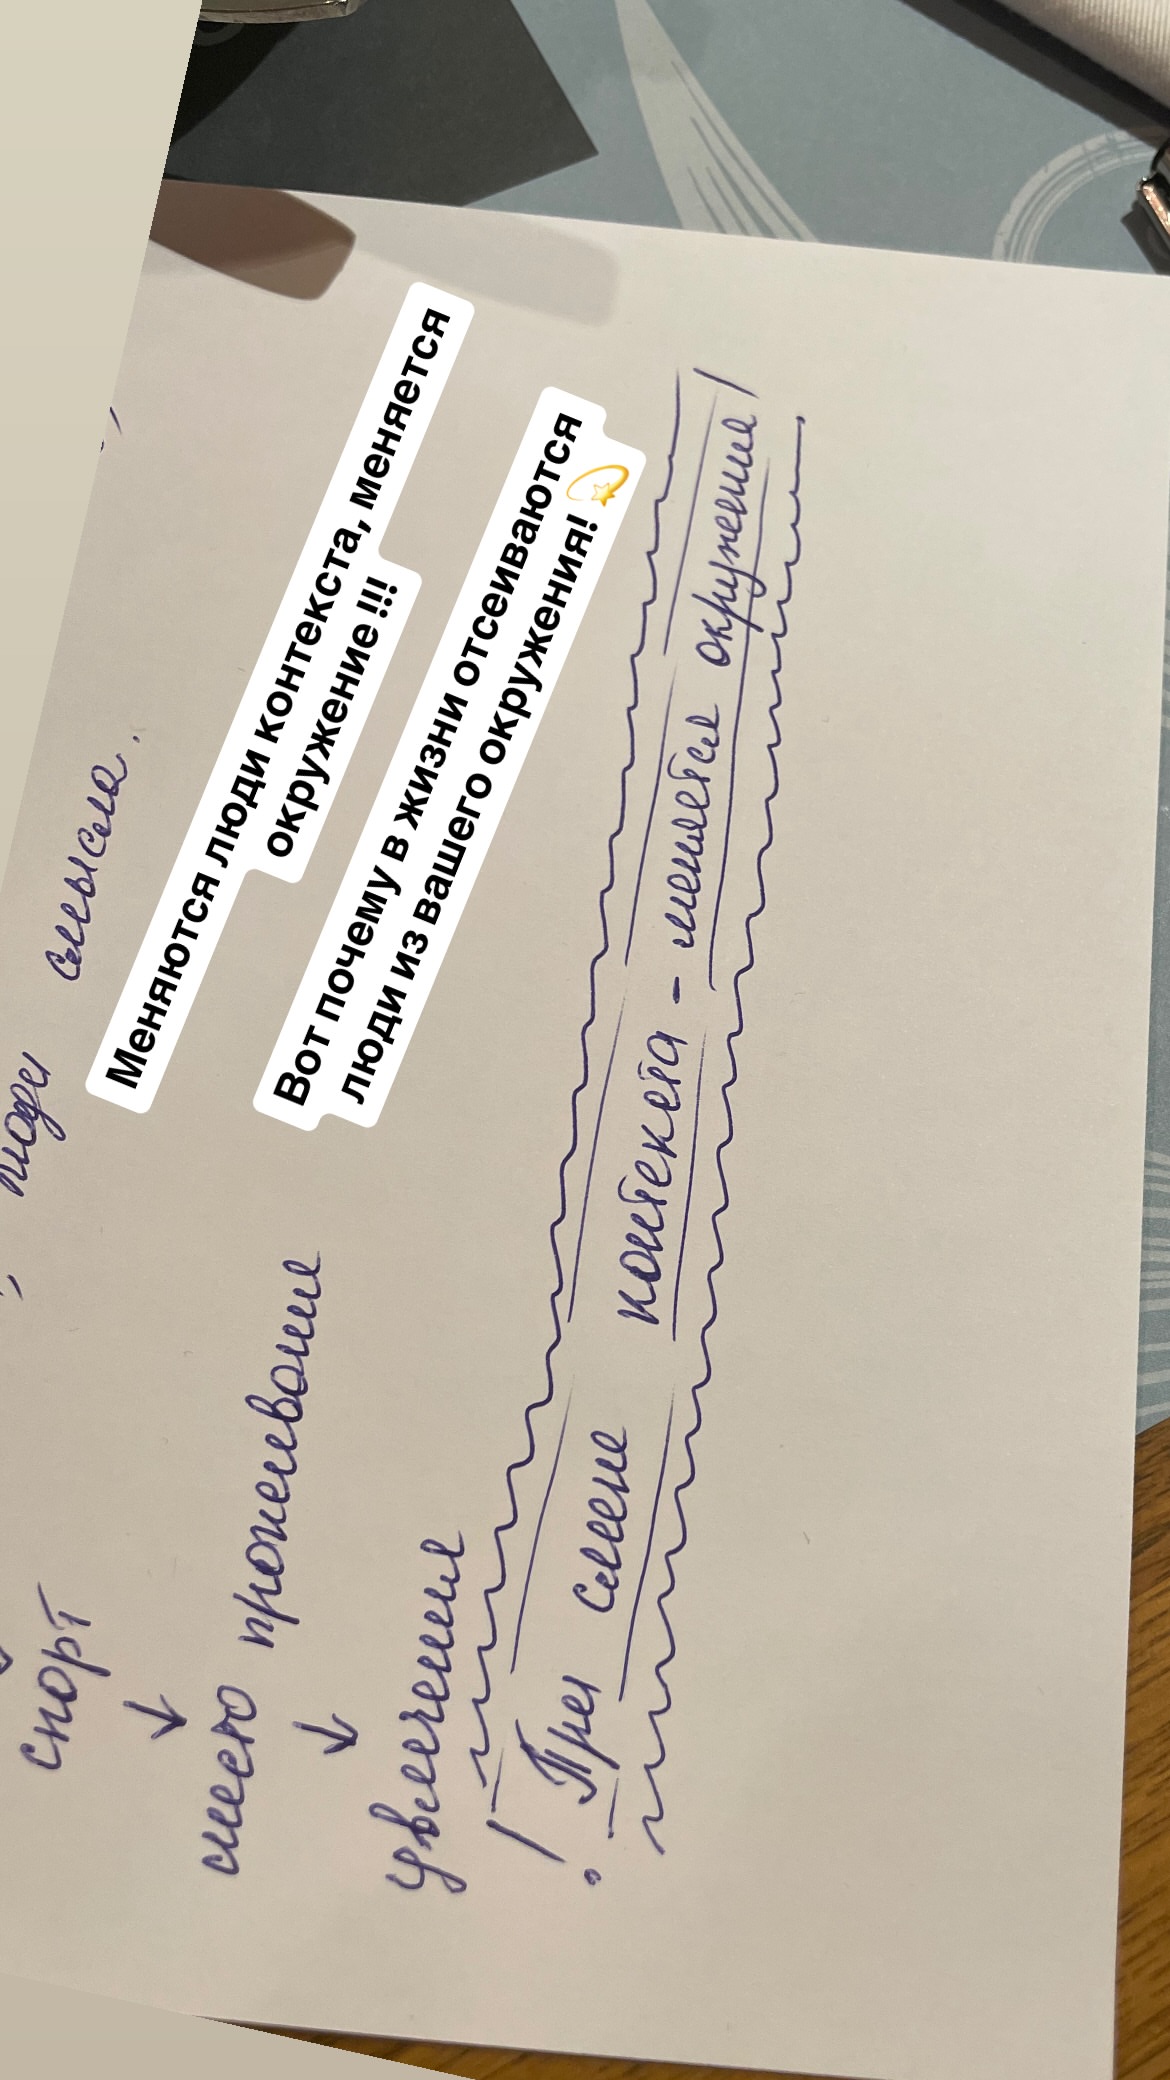 люди смысла.
Меняются люди контекста, меняется
окружение !!!
Вот почему в жизни отсеиваются
люди из вашего окружения! 💫
спорт
↓
место проживание
↓
увлечения
! При смене контекста - меняется окружение!